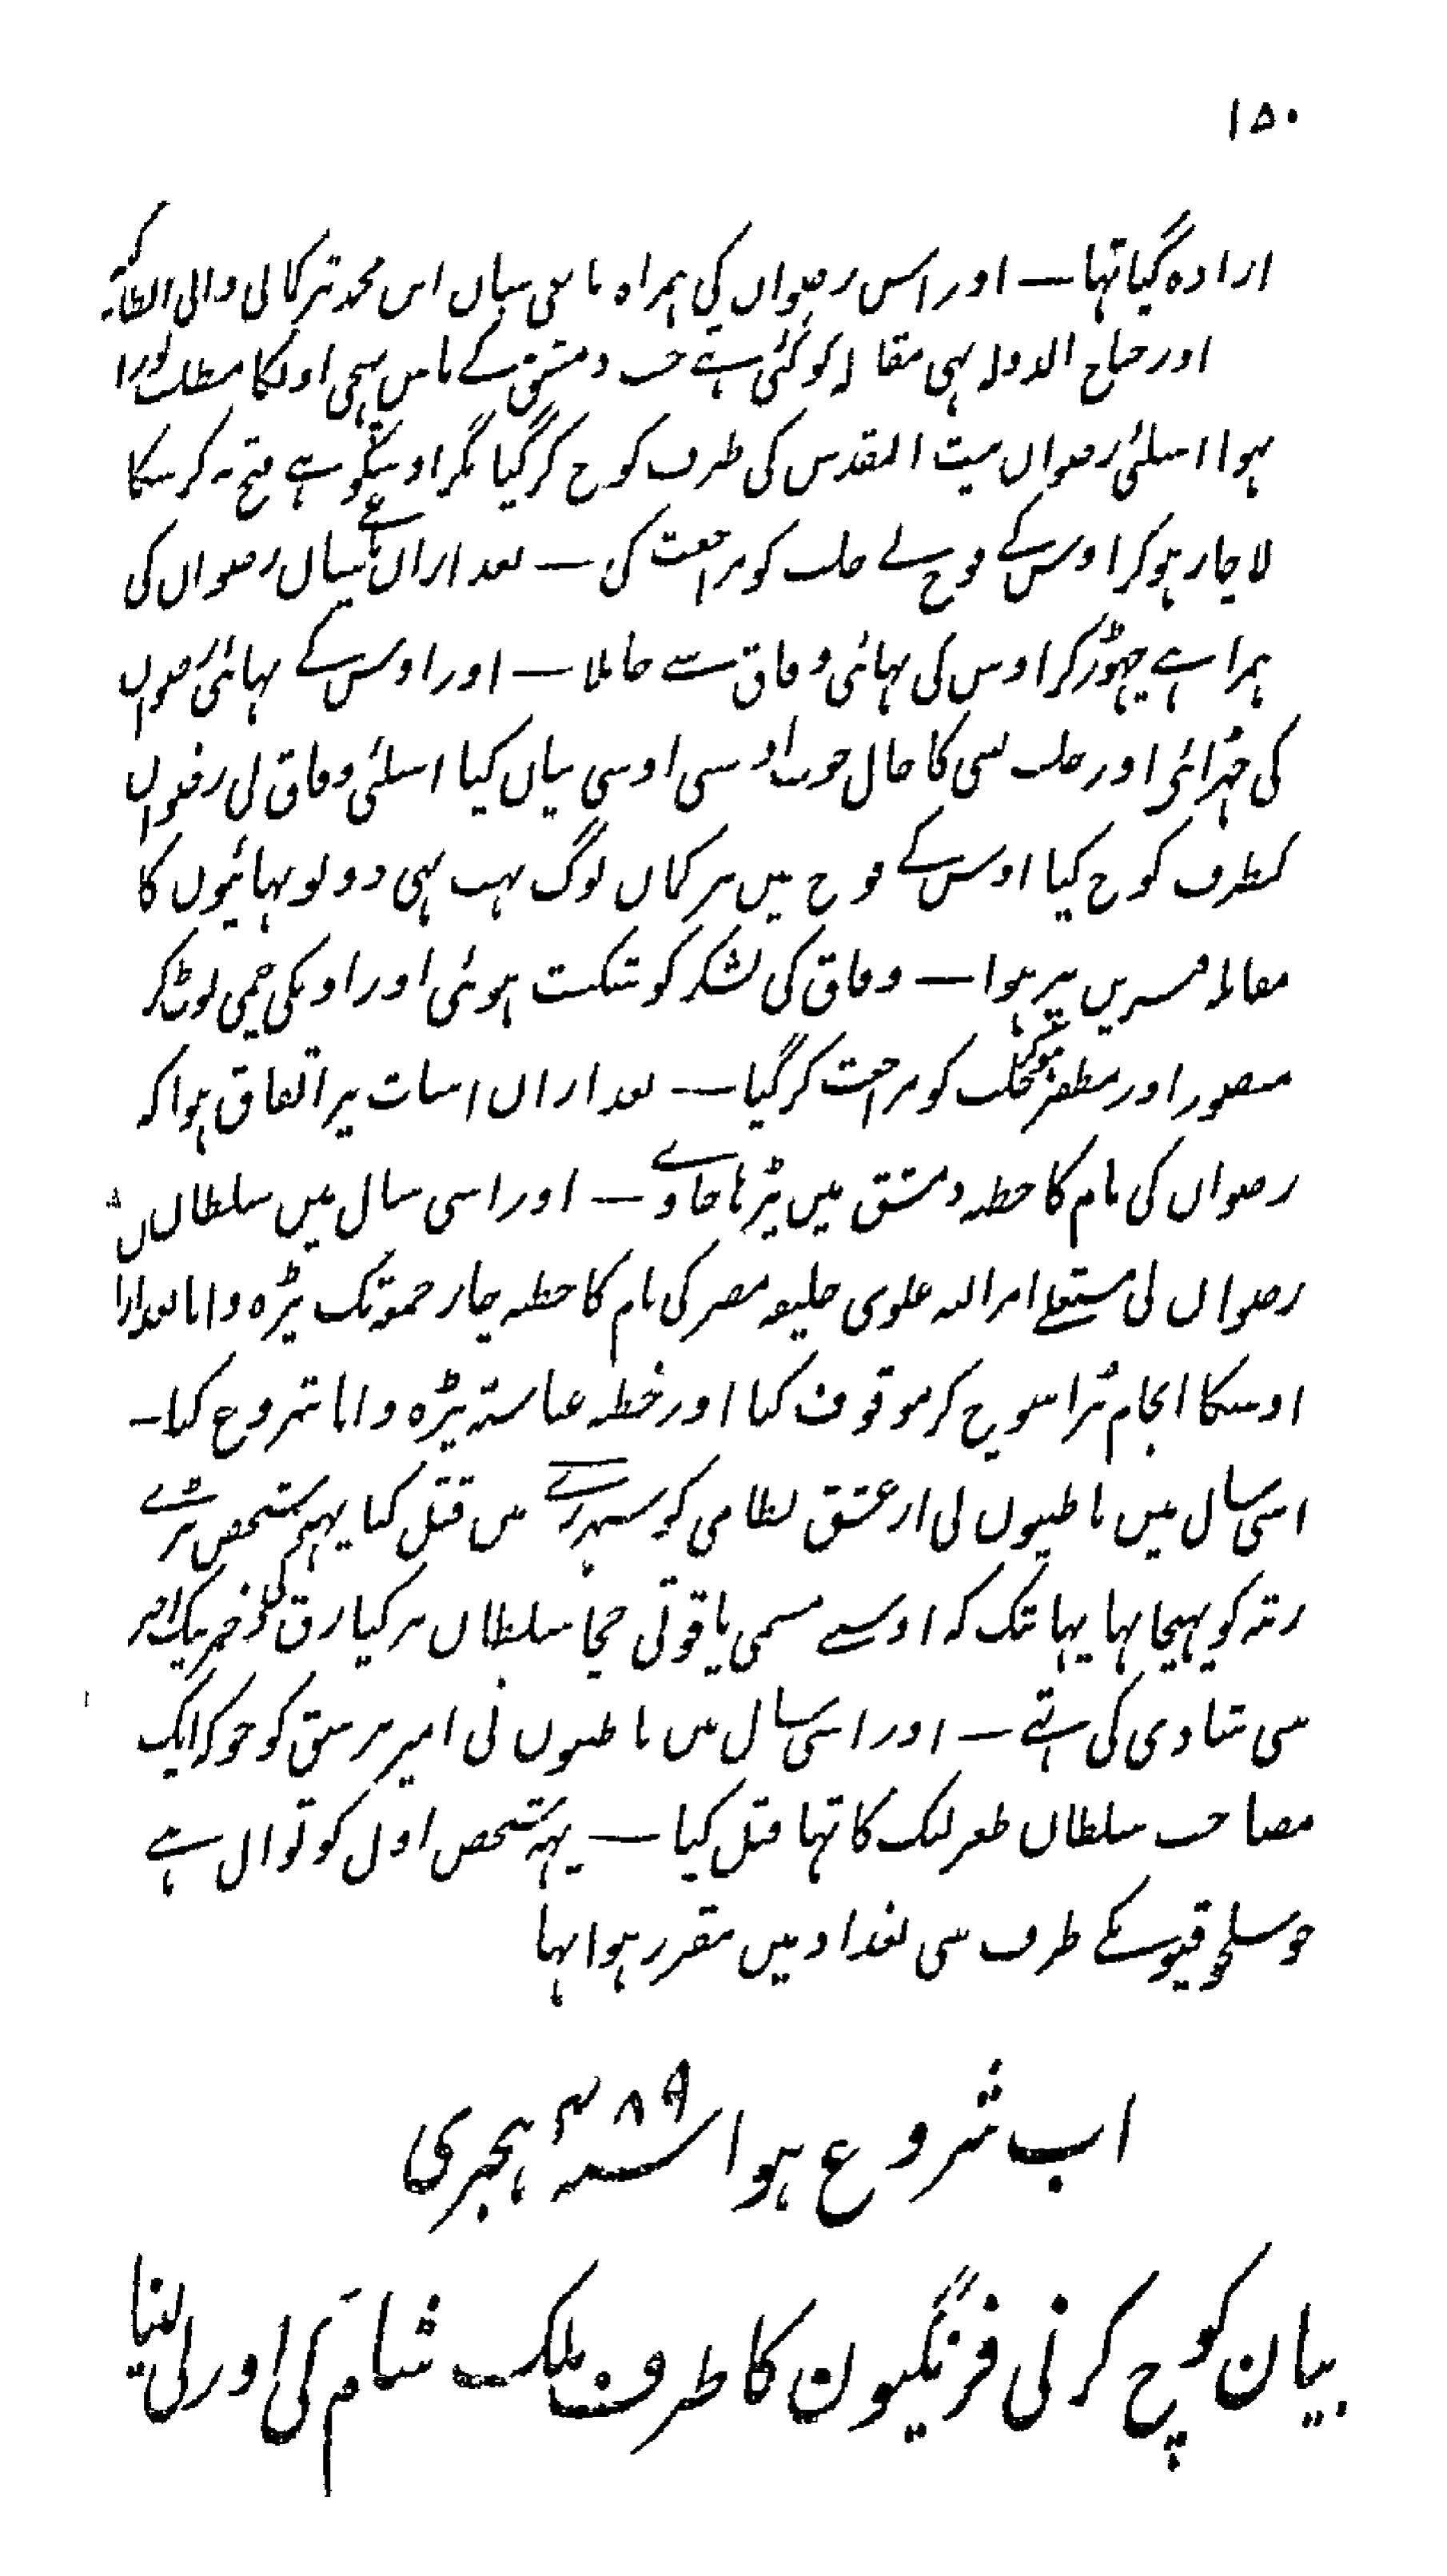 ۱۵۰
ارادہ گیا تہا — اور اس رضوان کی ہمراہ باغی سیان ابن محمد ترکمانی والی انطاکیہ کی
اور جناح الدولہ بہی مقابلہ کو گئی تہے جب دمشق کے پاس پہنچی اونکا مطلب پورا نہ
ہوا اسلئی رضوان بیت المقدس کی طرف کوچ کر گیا مگر اوسکو بہے فتح نہ کر سکا
لاچار ہوکر اوس کے فوج نے حلب کو مراجعت کی — بعد ازان باغی سیان رضوان کی
ہمراہے چہوڑ کر اوس کی بہائی دقاق سے جا ملا — اور اوس کے بہائی رضوان
کی چڑائی اور حلب کا حال خوب اوسی بیان کیا اسلئی دقاق نی رضوان
کیطرف کوچ کیا اوس کے فوج میں ترکمان لوگ بہت تہی دونو بہائیوں کا
مقابلہ قنسرین پر ہوا — دقاق کی لشکر کو شکست ہوئی اور اونکی خیمی لوٹ کر
منصور اور مظفر ہوکر حلب کو مراجعت کر گیا — بعد ازان اسبات پر اتفاق ہوا کہ
رضوان کی نام کا خطبہ دمشق میں پڑہا جاوے — اور اسی سال میں سلطان
رضوان نی مستعلے امر اللہ علوی خلیفہ مصر کی نام کا خطبہ چار جمعوتک پڑہوایا بعد ازان
اوسکا انجام برا سوچ کر موقوف کیا اور خطبہ عباسیہ پڑہوانا شروع کیا —
اسی سال میں باطنیوں نی ارعشق نظامی کو میں قتل کیا یہہ شخص بڑے
رتبہ کو پہنچا تہا یہانتک کہ اوسے مسمی یاقوتی چچا سلطان برکیارق کی دختر نیک اختر
سی شادی کی تہے — اور اسی سال میں باطنیوں نی امیر برسق کو جو کہ ایک
مصاحب سلطان طغرلبک کا تہا قتل کیا — یہہ شخص اول کوتوال ہے
جو سلجوقیونکے طرف سی بغداد میں مقرر ہوا تہا
اب شروع ہوا سنہ ۴۸۹ ہجری
بیان کوچ کرنی فرنگیون کا طرف ملک شام کی اور لی لینا